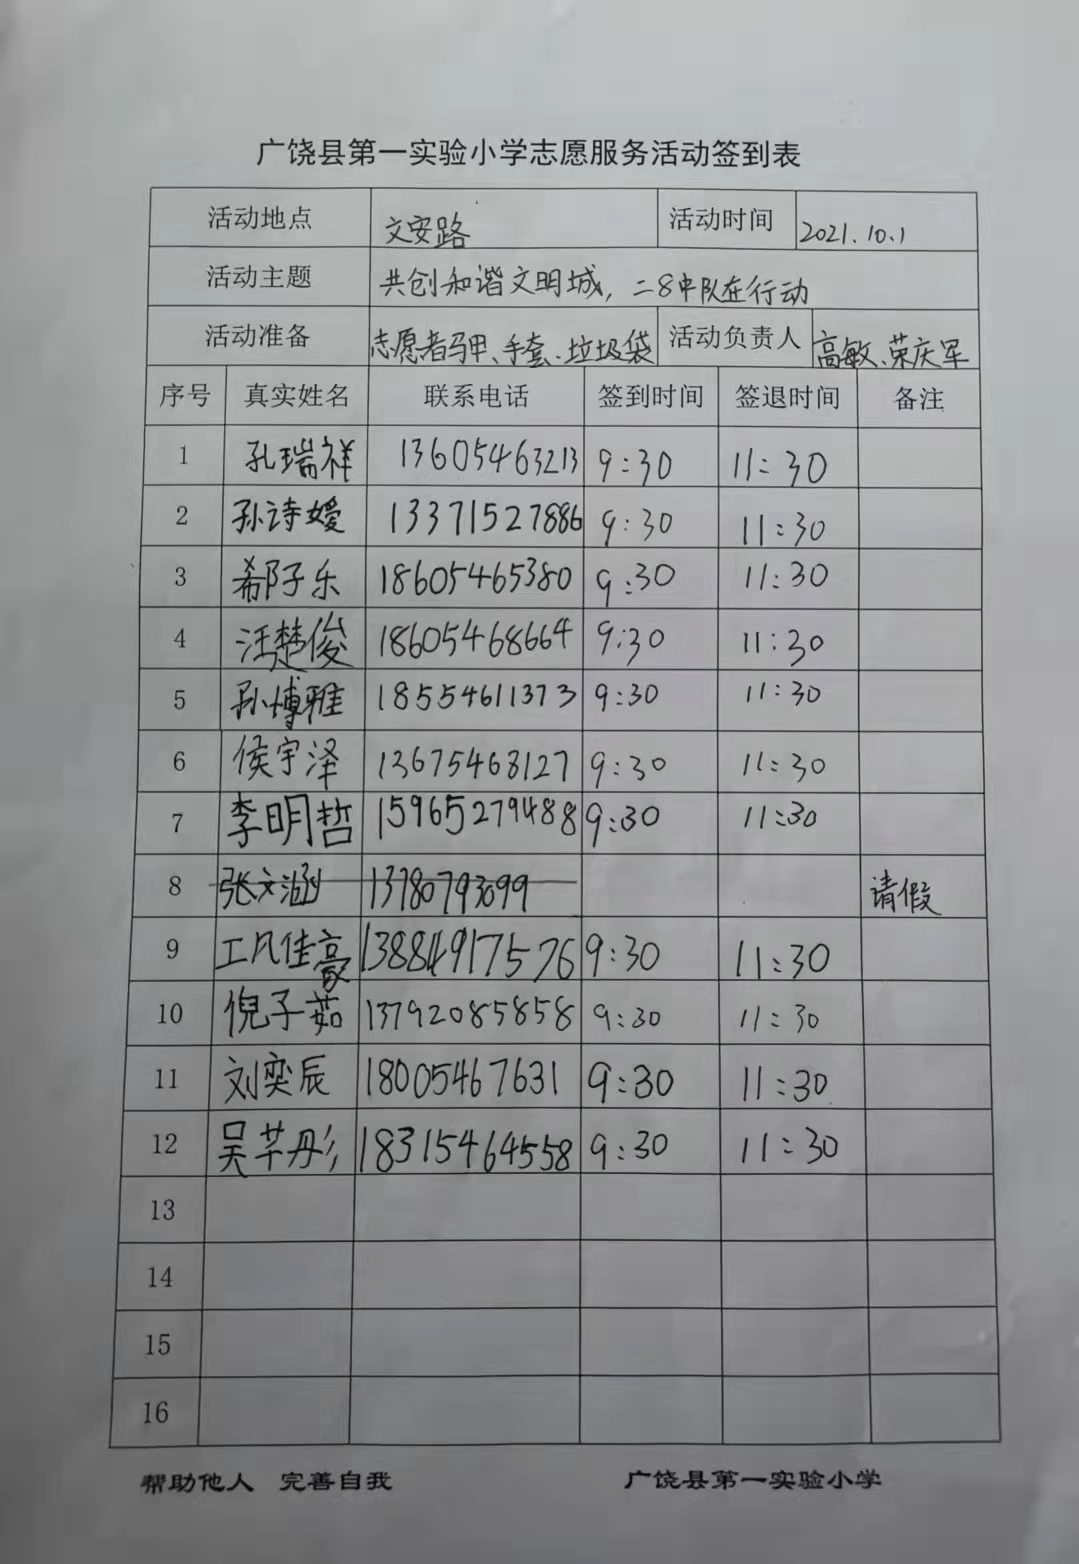 广饶县第一实验小学志愿服务活动签到表
活动地点 文安路 活动时间 2021.10.1
活动主题 共创和谐文明城，二8中队在行动
活动准备 志愿者马甲、手套、垃圾袋 活动负责人 高敏、荣庆军
序号 真实姓名 联系电话 签到时间 签退时间 备注
1 孔瑞祥 13605463213 9:30 11:30
2 孙诗嫒 13371527886 9:30 11:30
3 子乐 18605465380 9:30 11:30
4 汪楚俊 18605468664 9:30 11:30
5 孙博雅 18554611373 9:30 11:30
6 侯宇泽 13675463127 9:30 11:30
7 李明哲 15965279488 9:30 11:30
8 张文涵 13780793099 请假
9 佳豪 13884917576 9:30 11:30
10 倪子茹 13792085858 9:30 11:30
11 刘奕辰 18005467631 9:30 11:30
12 吴芊彤 18315464558 9:30 11:30
13
14
15
16
帮助他人 完善自我 广饶县第一实验小学